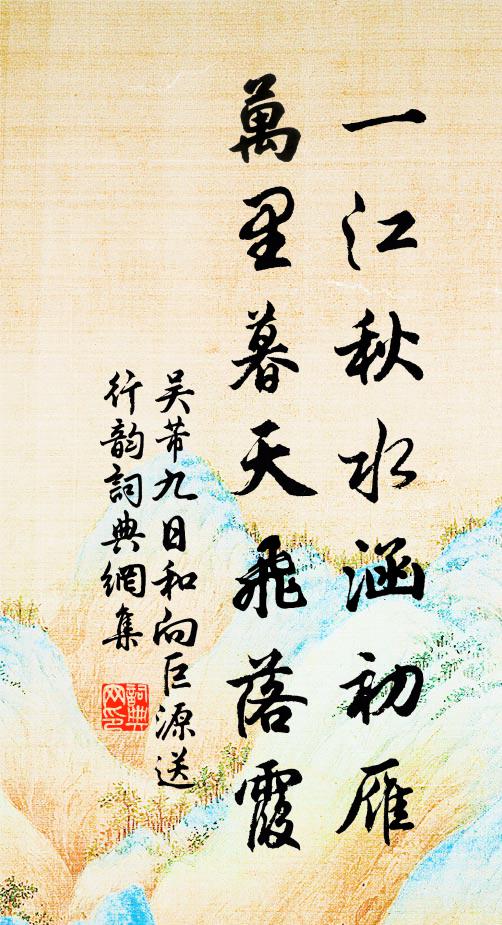 一江秋水涵初雁
萬里暮天飛落霞
吴芾九日和向巨源送
行韵詞典網集
詞典网印